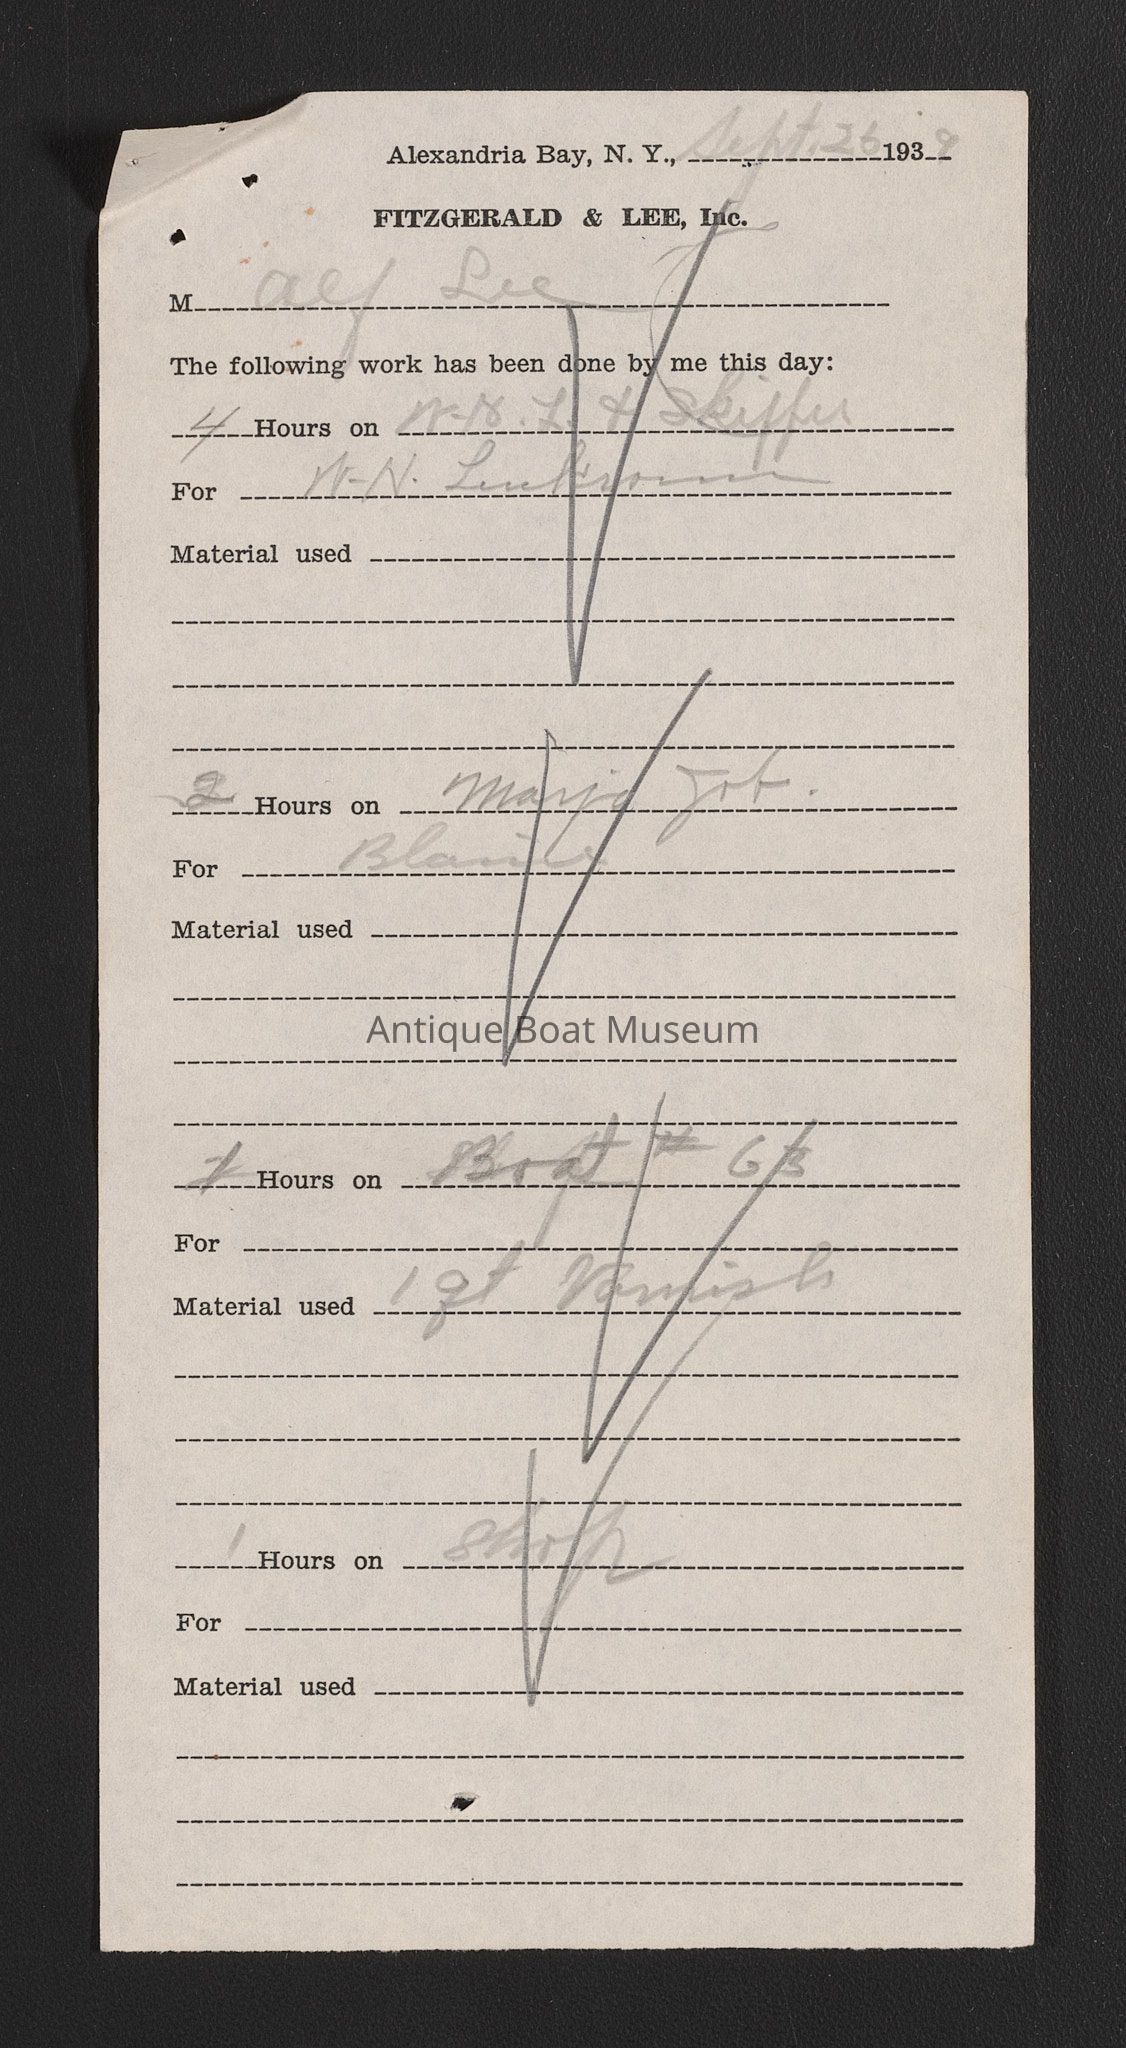 Alexandria Bay, N. Y., Sept. 26 1939
FITZGERALD & LEE, Inc.
M Alf Lee
The following work has been done by me this day:
4 Hours on W-N. L. & Skipper
For W-N.
Material used
2 Hours on Marja Job.
For Blaine
Material used
Antique Boat Museum
1 Hours on Boat # 63
For
Material used 1 qt Varnish
1 Hours on Shop
For
Material used